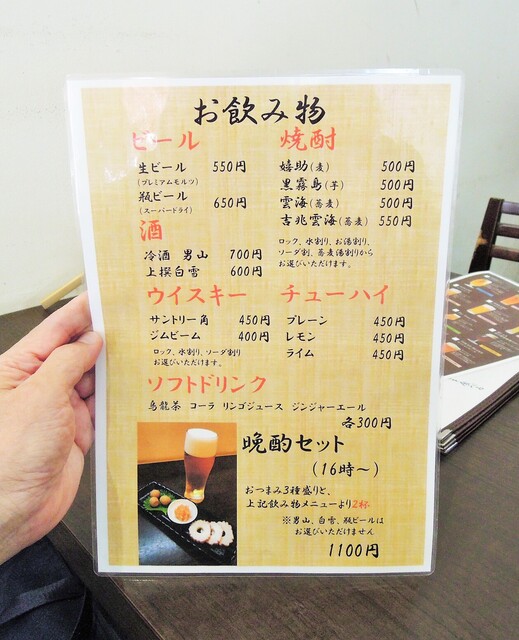 お飲み物
ビール
生ビール 550円
(プレミアムモルツ)
瓶ビール 650円
(スーパードライ)
酒
冷酒 男山 700円
上撰白雪 600円
焼酎
嬉助(麦) 500円
黒霧島(芋) 500円
雲海(蕎麦) 500円
吉兆雲海(蕎麦) 550円
ロック、水割り、お湯割り、
ソーダ割、蕎麦湯割りから
お選びいただけます。
ウイスキー
サントリー角 450円
ジムビーム 400円
ロック、水割り、ソーダ割り
お選びいただけます。
チューハイ
プレーン 450円
レモン 450円
ライム 450円
ソフトドリンク
烏龍茶 コーラ リンゴジュース ジンジャーエール
各300円
晩酌セット
(16時〜)
おつまみ3種盛りと、
上記飲み物メニューより2杯
※男山、白雪、瓶ビールは
お選びいただけません
1100円